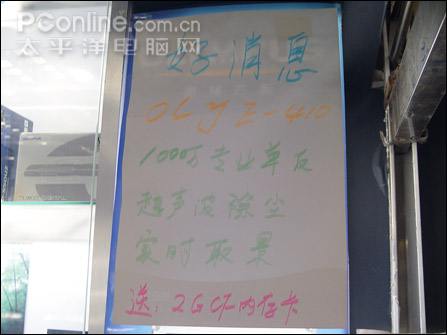 PConline.com.cn
太平洋电脑网
好消息
OLY E-410
1000万专业单反
超声波除尘
实时取景
送:2G CF内存卡